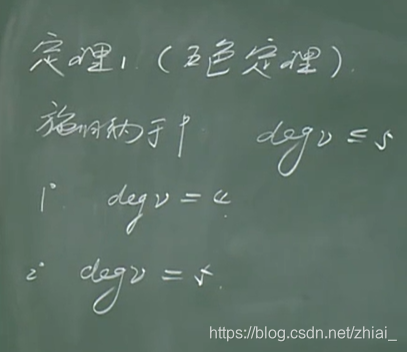 定理1. (五色定理).
施归纳于p. deg v ≤ 5
1° deg v = 4.
2° deg v = 5.
https://blog.csdn.net/zhiai_